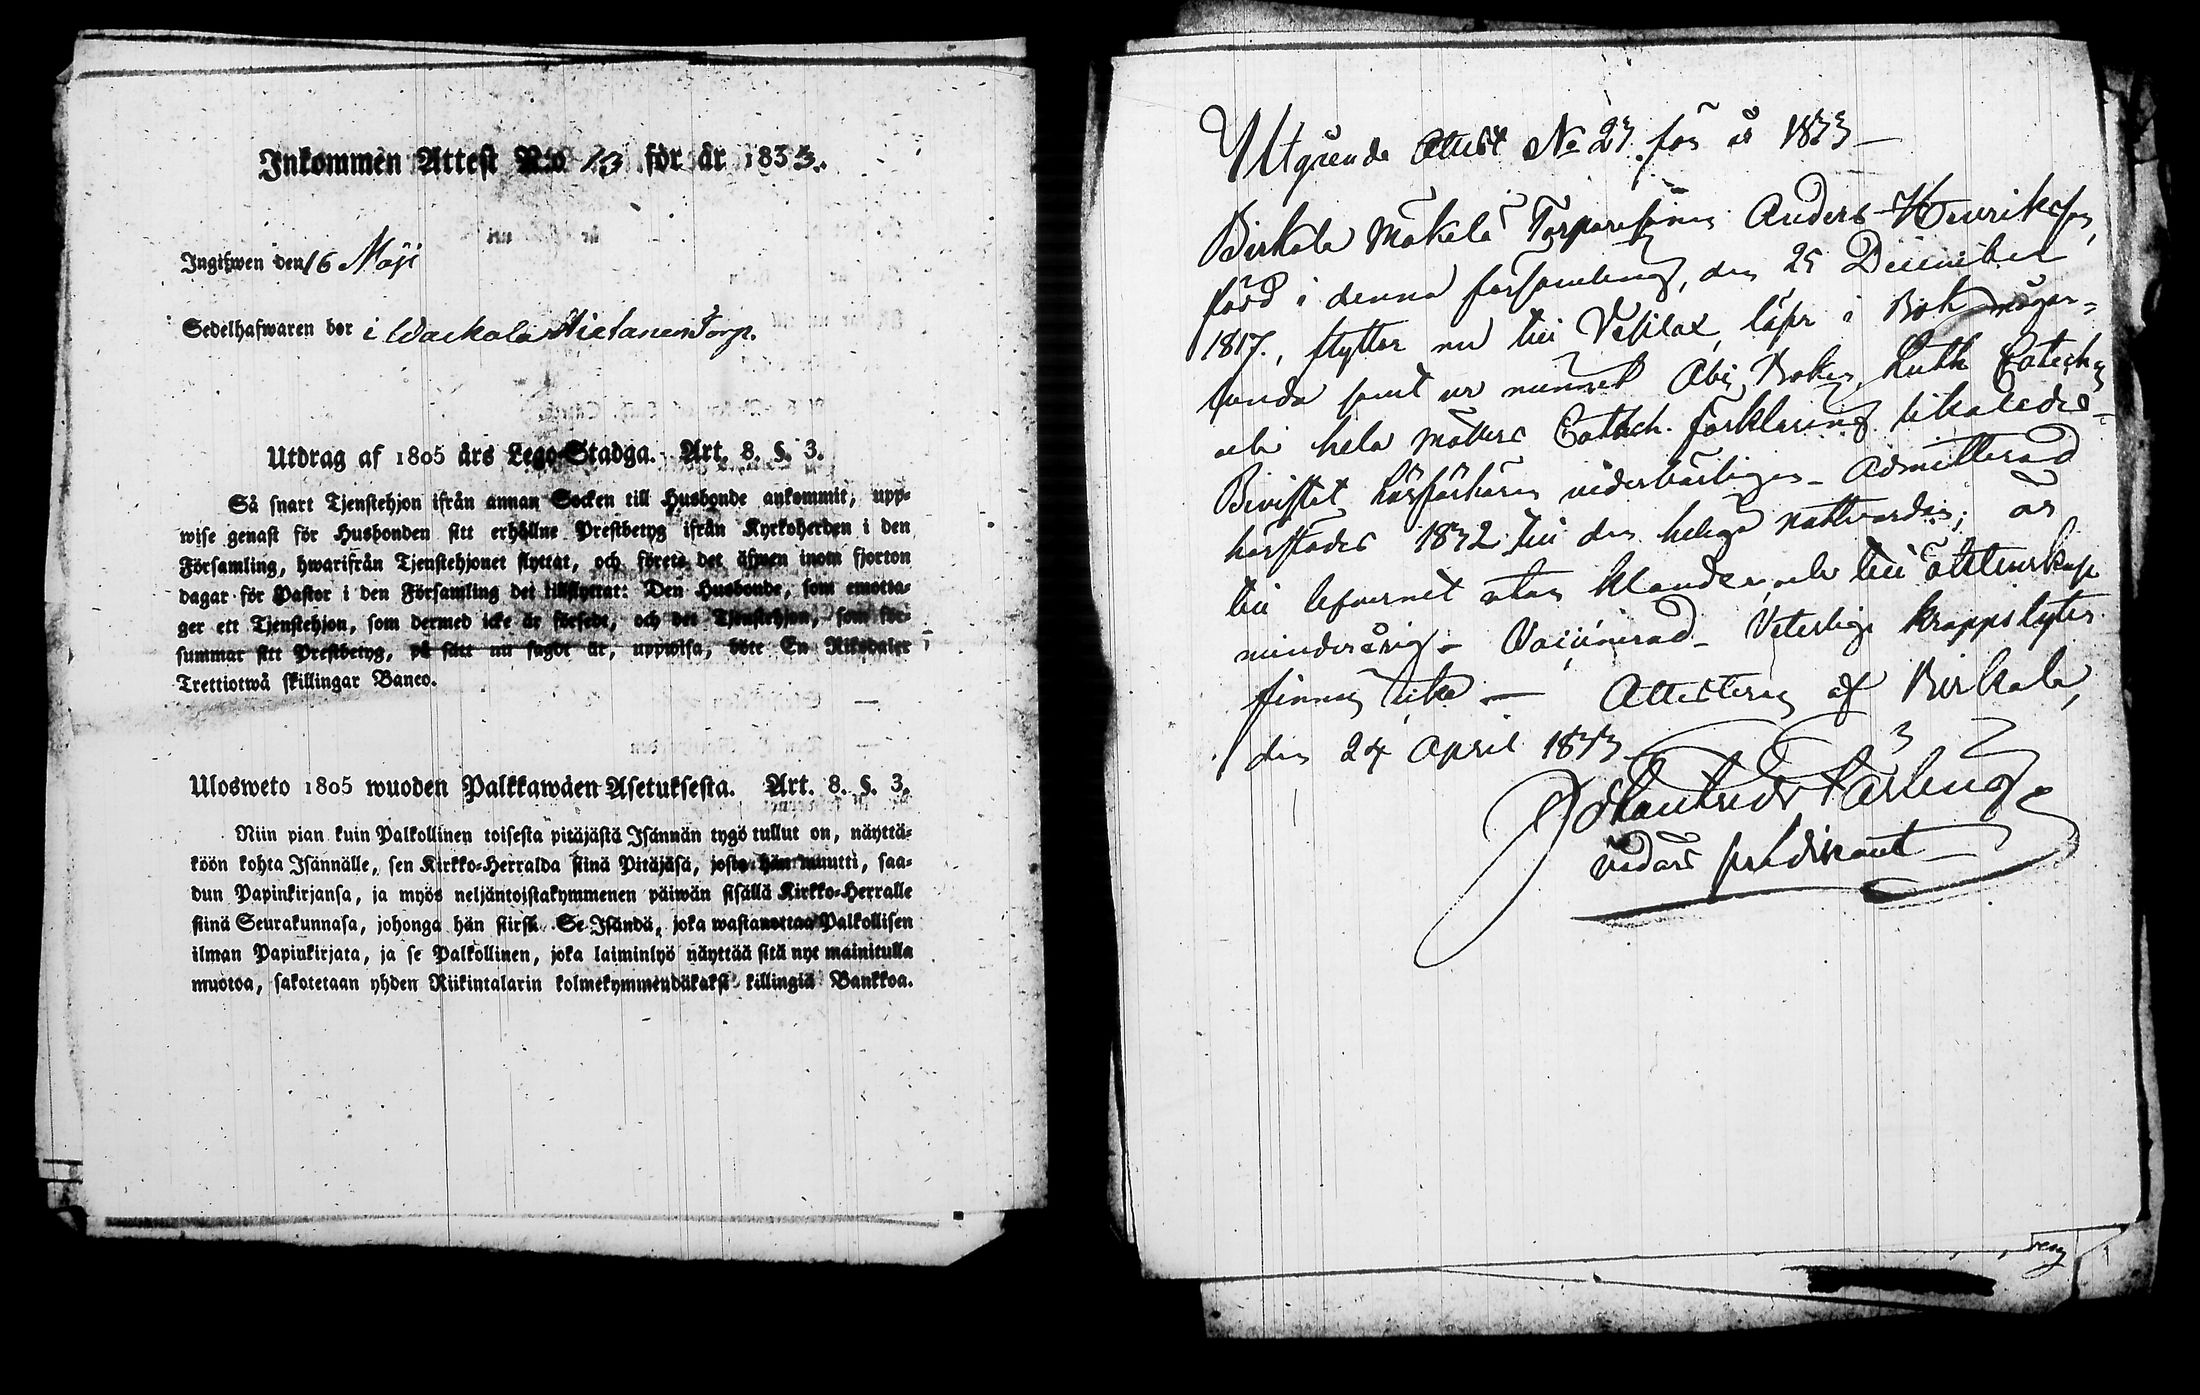 Inkommen Attest N:o 13 för år 1833.
Ingifwen den 16 Maji
Sedelhafwaren bor i Wackala Hietanen Torp.
Utdrag af 1805 års Lego-Stadga. Art. 8. §. 3.
Så snart Tjenstehjon ifrån annan Socken till Husbonde ankommit, upp-
wise genast för Husbonden sitt erhållne Prestbetyg ifrån Kyrkoherden i den
Församling, hwarifrån Tjenstehjonet flyttat, och förete det äfwen inom fjorton
dagar för Pastor i den Församling det tillflyttat: Den Husbonde, som emotta-
ger ett Tjenstehjon, som dermed icke är försedt, och det Tjenstehjon, som för-
summar sitt Prestbetyg, på sätt nu sagdt är, uppwisa, böte En Riksdaler
Trettiotwå skillingar Banco.
Ulosweto 1805 wuoden Palkkawäen Asetuksesta. Art. 8. §. 3.
Niin pian kuin Palkollinen toisesta pitäjästä Isännän tygö tullut on, näyttä-
köön kohta Isännälle, sen Kirkko-Herralda siinä Pitäjäsä, josta hän muutti, saa-
dun Papinkirjansa, ja myös neljäntoistakymmenen päiwän sisällä Kirkko-Herralle
siinä Seurakunnasa, johonga hän siirsi. Se Isändä, joka wastanottaa Palkollisen
ilman Papinkirjata, ja se Palkollinen, joka laiminlyö näyttää sitä nyt mainitulla
muotoa, sakotetaan yhden Riikintalarin kolmekymmendäkaksi killingiä Bankkoa.
Utgående Attest No 23 för år 1833 —
Birkala Mäkelä Torparesonen Anders Henriksson,
född i denna församling, den 25 December
1817., flyttar nu till Vesilax, läser i Bok någor-
lunda samt ur minnet Abc Boken, Luth. Catech.
och hela Catech. förklaring likaledes –
Bivistat Läsförhören . Admitterad
härstädes 1832 till den heliga nattvarden; är
till lefvernet utan klander, och till ächtenskap
minderårig – Vaccinerad – Veterlige kroppslyten
finnes icke — Attesteras af Birkala,
den 24 April 1833